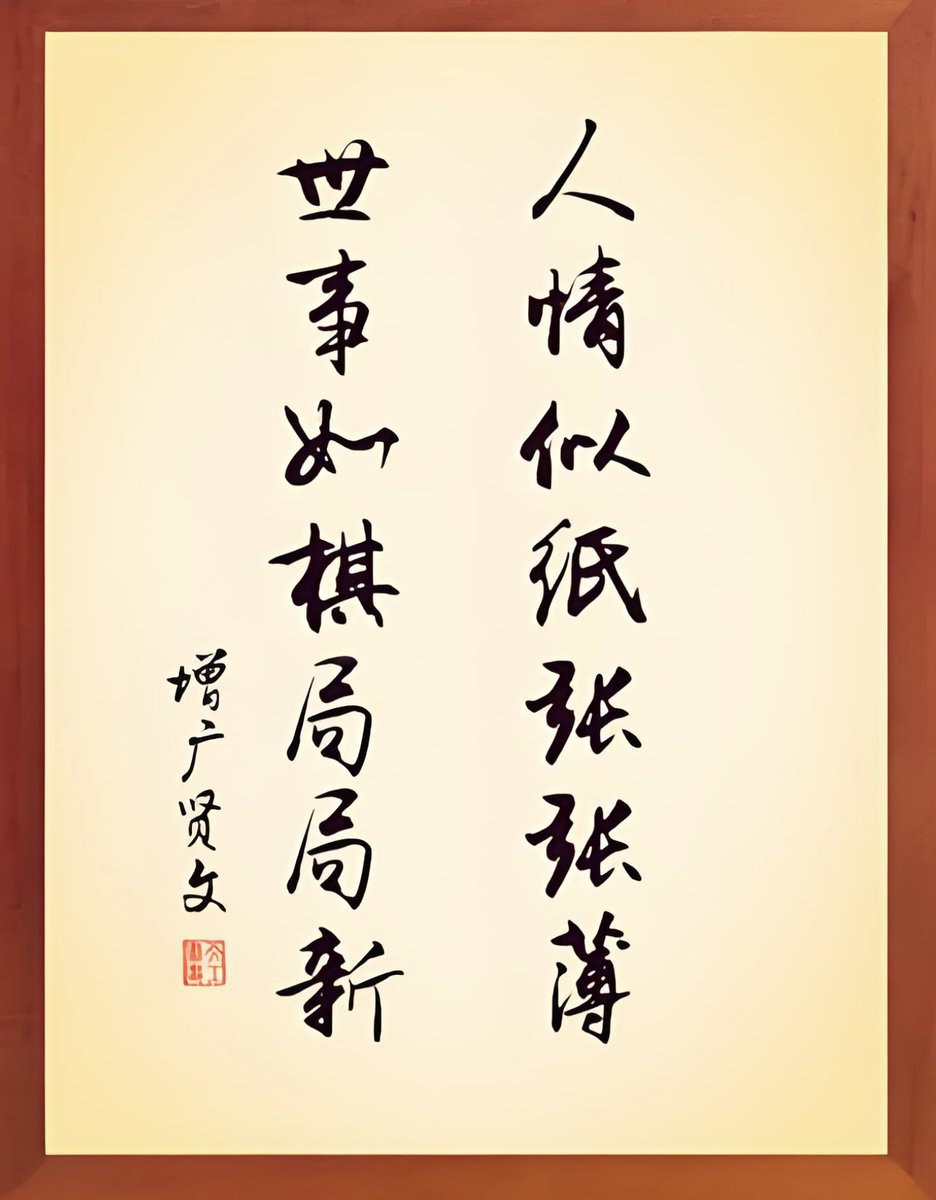 人情似纸张张薄
世事如棋局局新
增广贤文